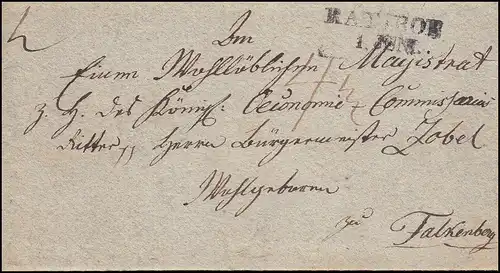 RATIBOR
1. JUNI.
An
Einen Wohllöblichen Magistrat
z. H. des Königl: Oeconomie-Commissarius
Ritter, Herrn Bürgermeister Zobel
Wohlgeboren
zu
Falkenberg